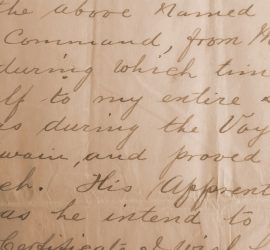 the above Named
Command, from
during which tim
lf to my entire
as during the Voy
wain, and proved
ch. His Apprent
as he intend to
Certificate